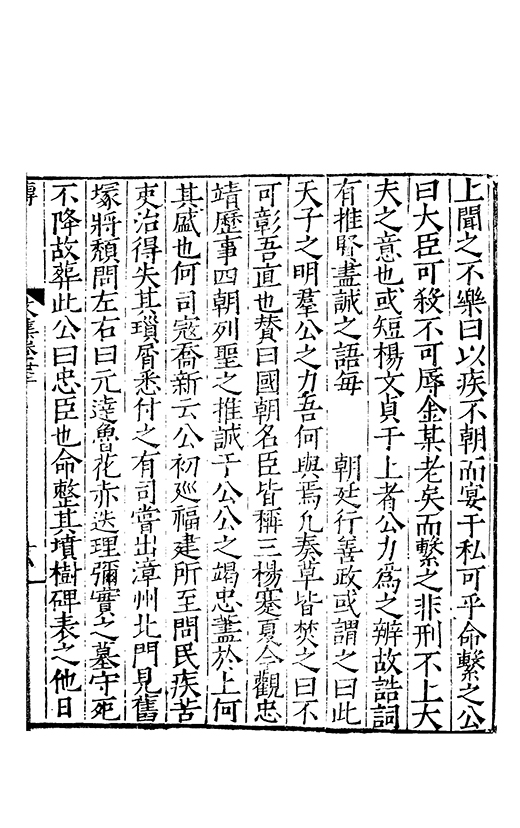 上聞之不樂曰以疾不朝而宴于私可乎命繫之公
曰大臣可殺不可辱金某老矣而繫之非刑不上大
夫之意也或短楊文貞于上者公力爲之辨故誥詞
有推賢盡誠之語毎　朝廷行善政或謂之曰此
天子之明羣公之力吾何與焉凡奏草皆焚之曰不
可彰吾直也贊曰國朝名臣皆稱三楊蹇夏今觀忠
靖歷事四朝列聖之推誠于公公之竭忠藎於上何
其盛也何司冦喬新云公初廵福建所至問民疾苦
吏治得失其瑣屑悉付之有司嘗出漳州北門見舊
塚將頹問左右曰元逹魯花赤迭理彌實之墓守死
不降故葬此公曰忠臣也命整其墳樹碑表之他日
傳